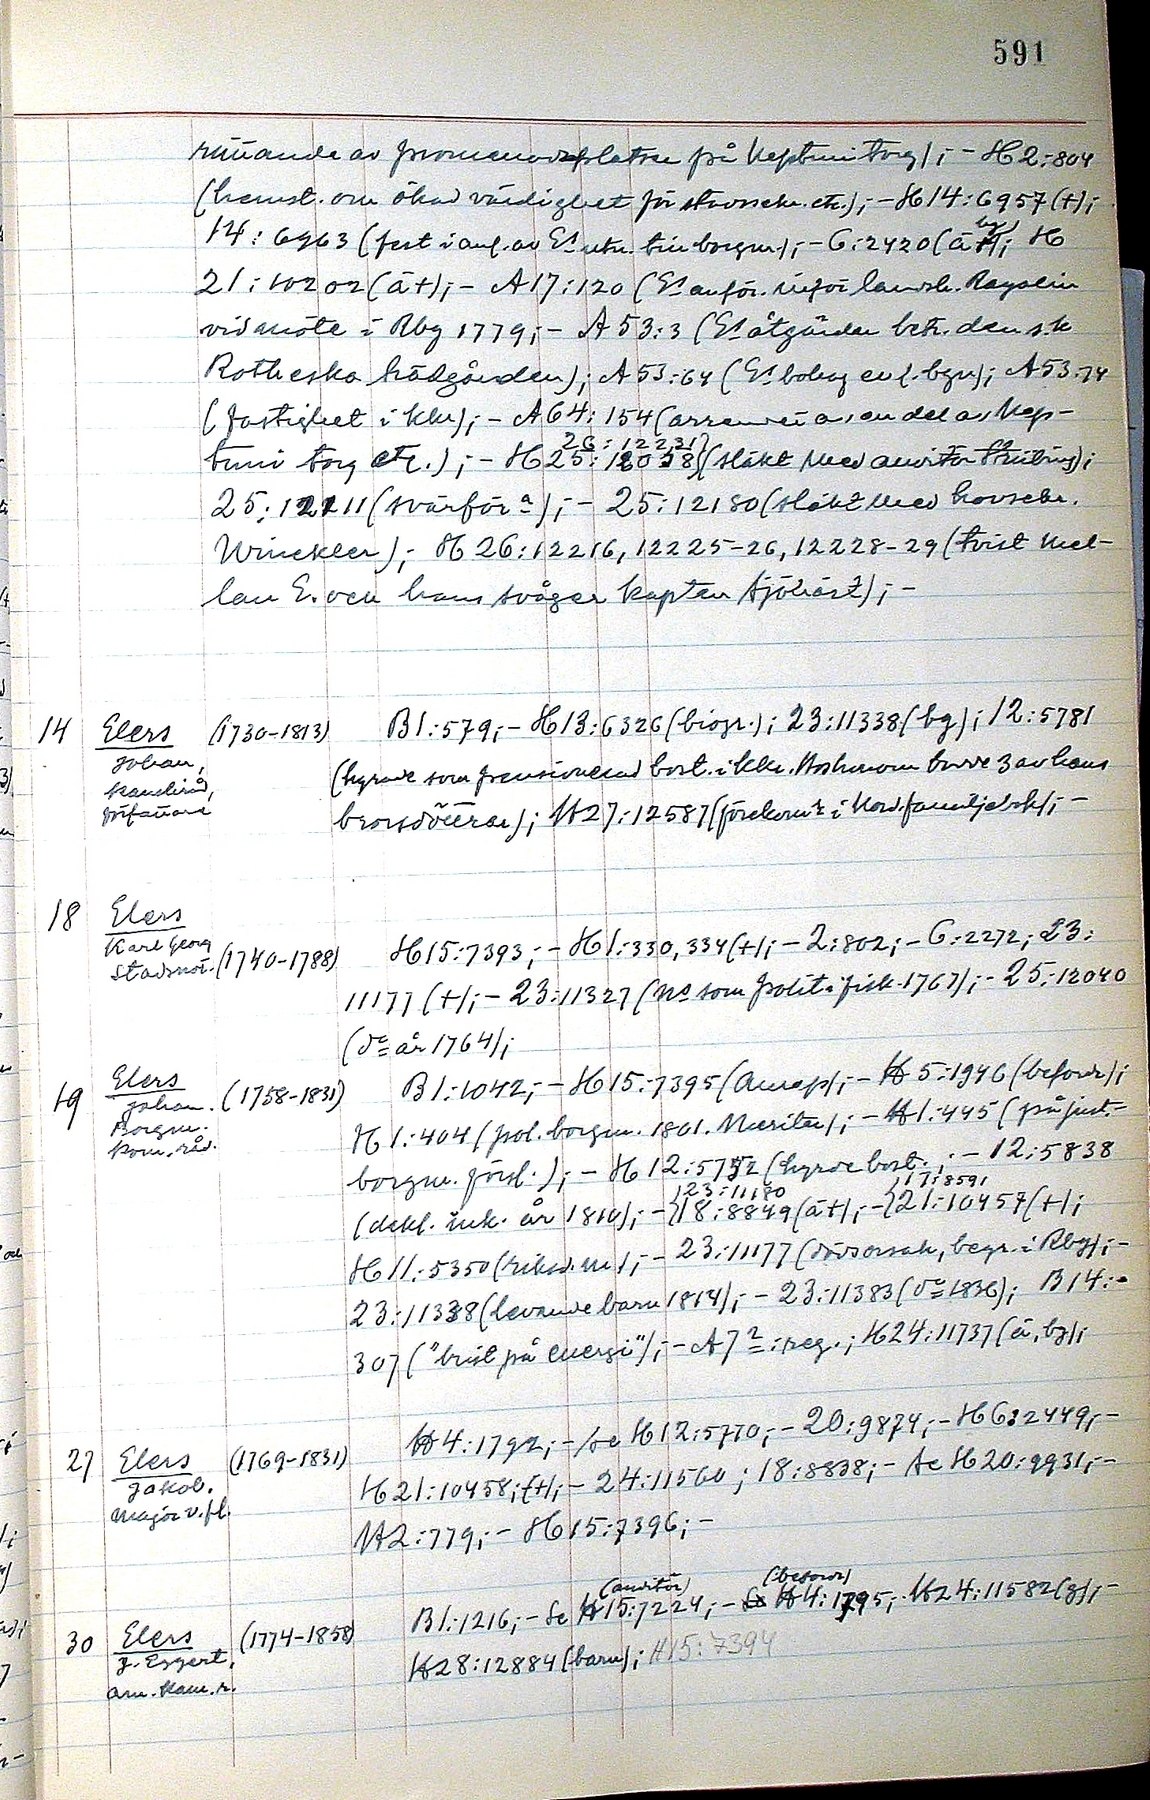 591
av promenadplatsen på Neptuni torg); - H2:804
(hemst. om ökad värdighet för stadssekr. etc.); - H14:6957(+);
14:6963 (fest i anl. av Es utn. till borgm.); - 6:2420(ä+, bg); H
21:10202(ä+); - A17:120 (Es anför. inför landsh. Rayalin
vid möte i Rbg 1779; - A53:3 (Es åtgärder betr. den s.k
Rotheska trädgården); A53:64 (Es bolag ); A53:74
(fastighet i Kkr); - A64:154 (arrende av en del av Nep-
tuni torg etc.); - H25:12038 (släkt med auditör );
26:12231
25:12111 (svärför.a); - 25:12180 (släkt med hovsekr.
Winckler); H26:12216, 12225-26, 12228-29 (tvist mel-
lan E. och hans svåger kapten Sjöhäst); -
14 Elers (1730-1813) B1:579; - H13:6326 (biogr.); 23:11338 (bg); 12:5781
Johan,
kansliråd,
författare
(hyrde som pensionerad bost. i Kkr. Hos honom bodde 3 av hans
brorsdöttrar); H27:12587 (förekom.r i Nord familjebok); -
18 Elers
Karl Georg
Stadsnot. (1740-1788) H15:7393; - H1:330, 334(+); - 2:802; - 6:2272; 23:
11177 (+); - 23:11327 (No som polit. fisk. 1767); - 25:12040
(do år 1764);
19 Elers (1758-1831) B1:1042; - H15:7395 (Anrep); - H5:1946 (beford.);
Johan.
Borgm.
Kom. råd.
H1:404 (pol. borgm. 1801. Meriter); - H1:445 (på just.-
borgm. försl.); - H12:5752 (hyrde bost.; - 12:5838
(dekl. ink. år 1810); - 18:8849 (ä+); - 21:10457 (+);
23:11180 17:8591
H11:5350 (riksd. m.); - 23:11177 (dödsorsak, begr. i Rbg); -
23:11338 (levande barn 1814); - 23:11383 (do 1836); B14:-
307 ("brist på energi"); - A7 2: reg.; H24:11737 (ä, bg);
27 Elers (1769-1831) H4:1792; - Se H12:5770; - 20:9874; - H6:2449; -
Jakob.
Major v. fl.
H21:10458; (+); - 24:11560; 18:8838; - Se H20:9931; -
H2:779; - H15:7396; -
(auditör) (beford)
30 Elers (1774-1858) B1:1216; - Se H15:7224; - H4:1795; H24:11582 (g); -
J. Eggert,
arm. kam. r.
H28:12884 (barn); H15:7394